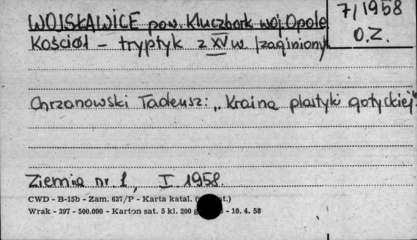 WOJSŁAWICE pow. Kluczbork woj. Opole
7/1958
O.Z.
Kościół - tryptyk z XV w. /zaginiony/
Chrzanowski Tadeusz: „Kraina plastyki gotyckiej"
Ziemia nr 1, I 1958.
CWD - B-15b - Zam. 637/P - Karta katal.
Wrak - 397 - 500.000 - Karton sat. 5 kl. 200 g - 10. 4. 58